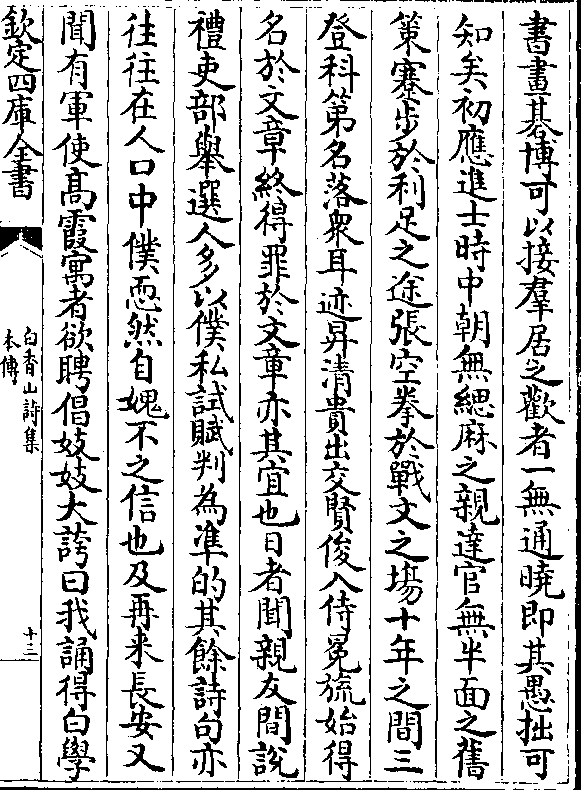 書畫棊博可以接羣居之歡者一無通曉即其愚拙可
知矣初應進士時中朝無緦麻之親達官無半面之舊
策蹇步於利足之途張空拳於戰文之場十年之間三
登科第名落衆耳迹昇清貴出交賢俊入侍冕旒始得
名於文章終得罪於文章亦其宜也日者聞親友間說
禮吏部舉選人多以僕私試賦判為凖的其餘詩句亦
往往在人口中僕恧然自媿不之信也及再来長安又
聞有軍使髙霞寓者欲聘倡妓妓大誇曰我誦得白學
欽定四庫全書
白香山詩集
本傳
十三